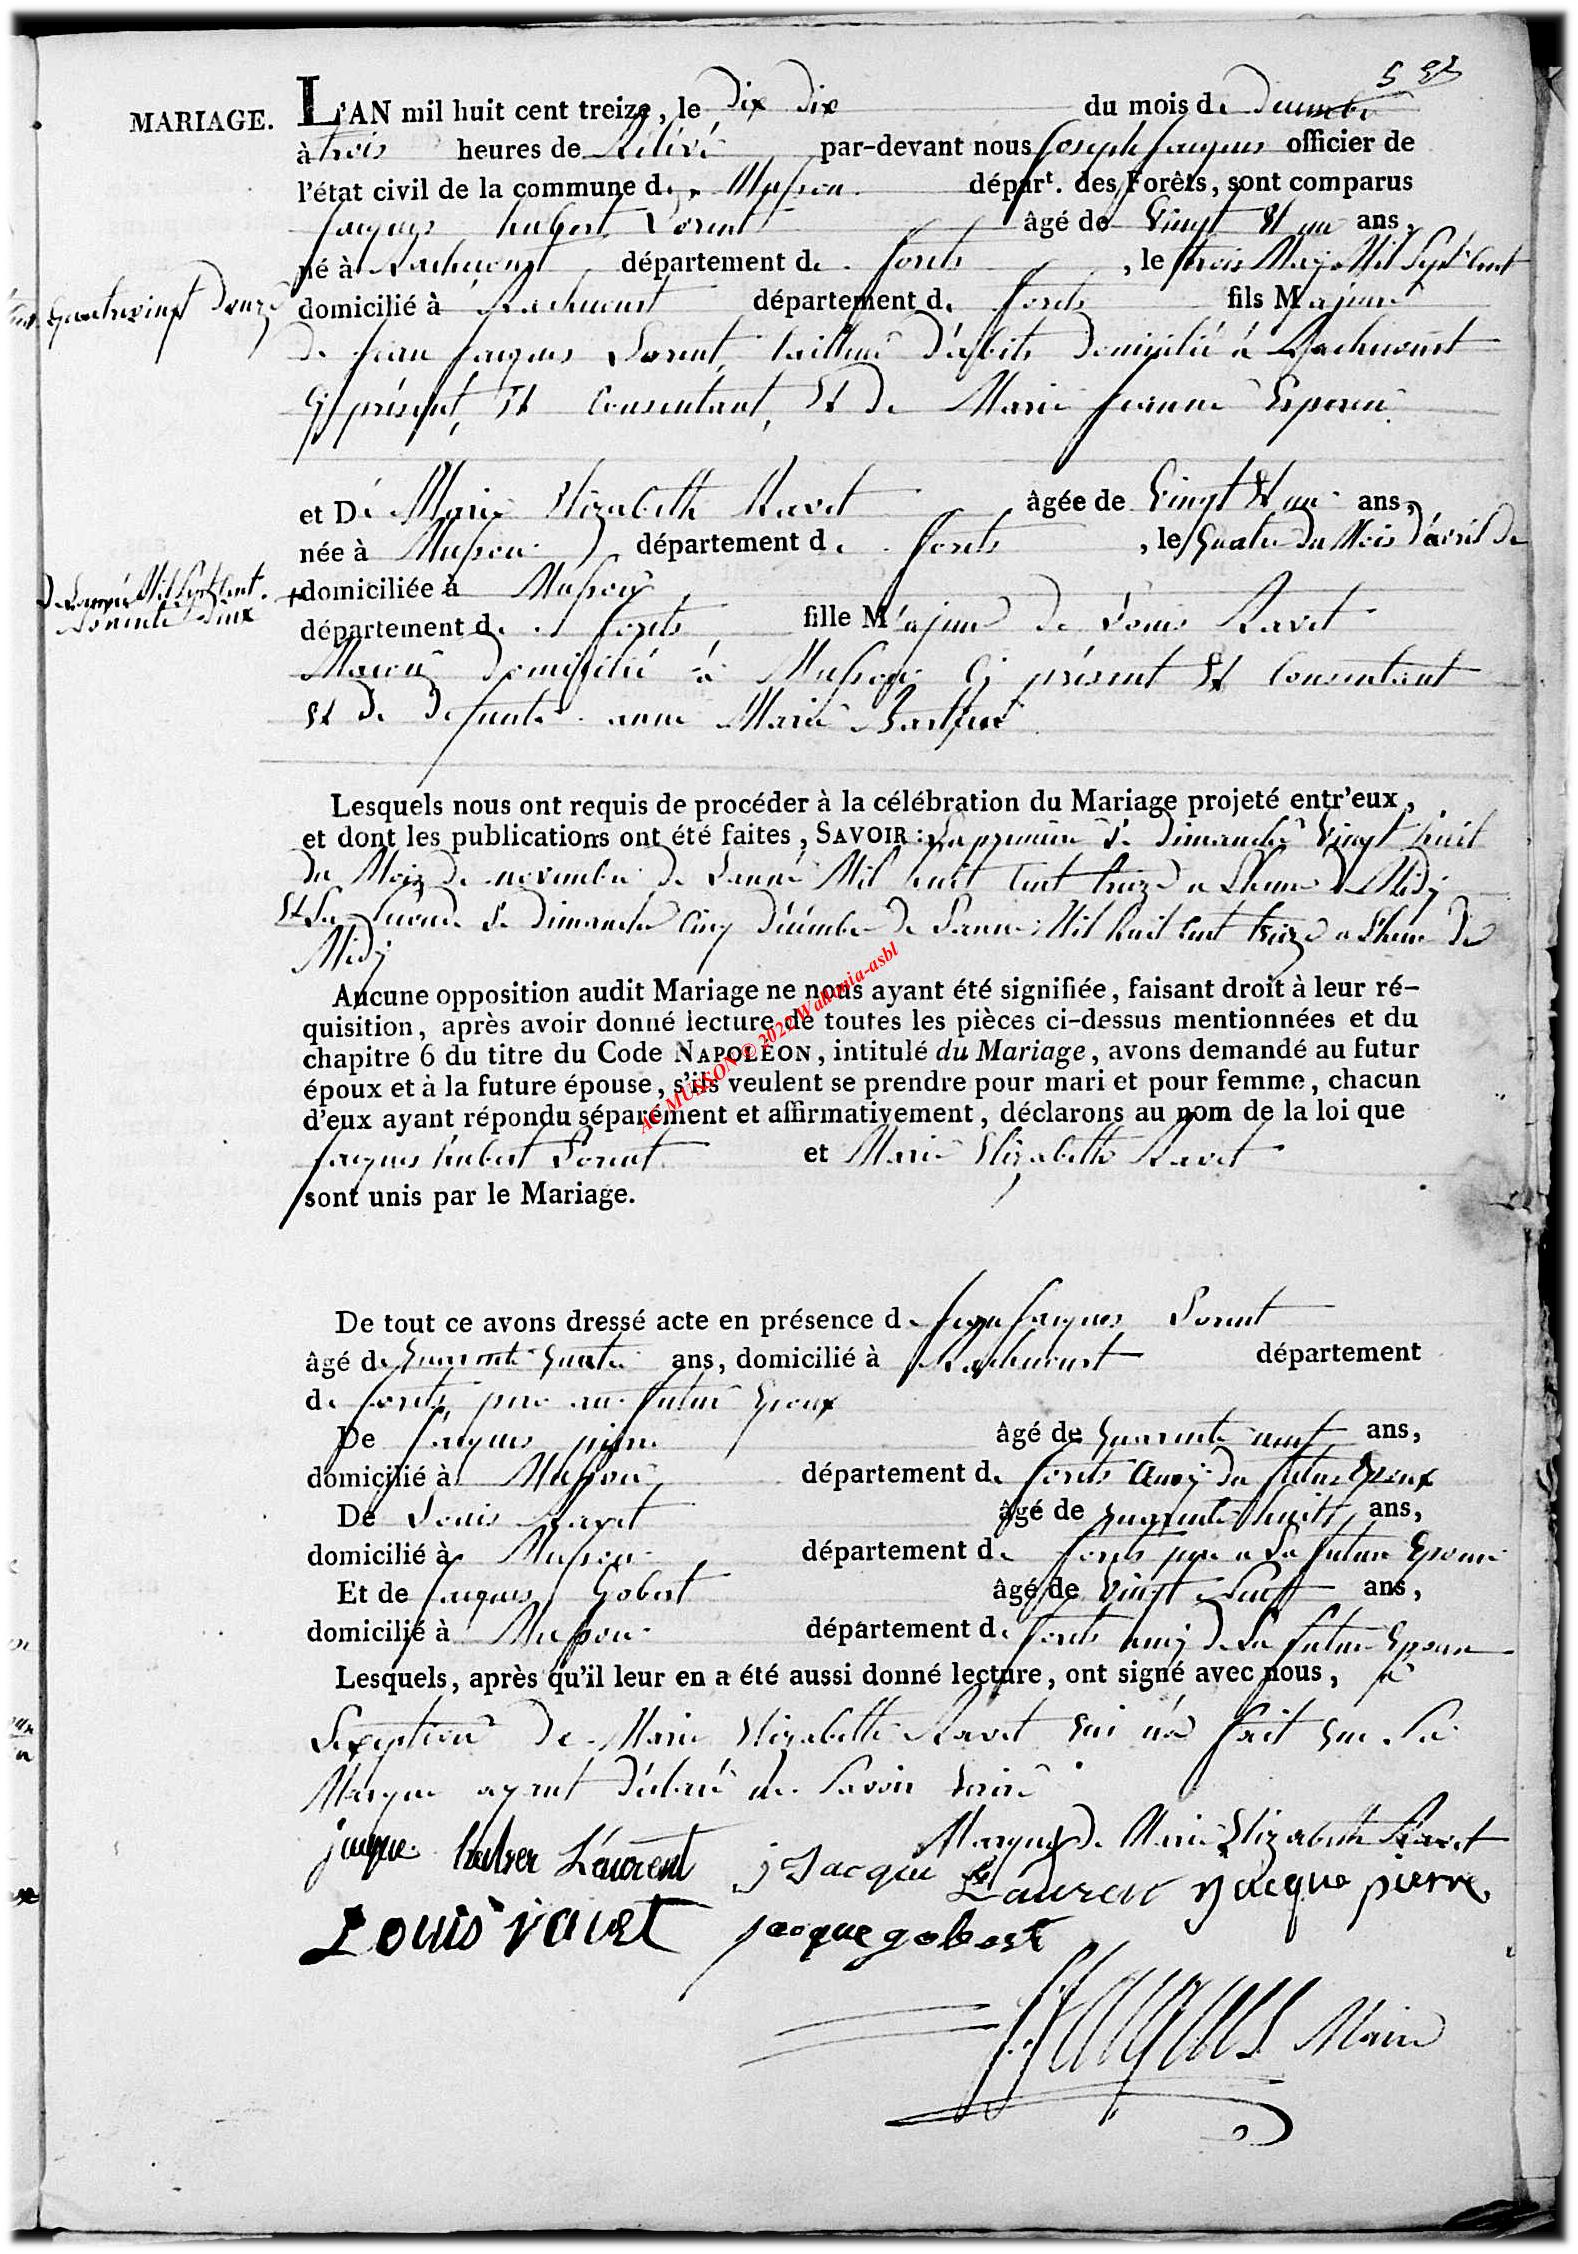 MARIAGE.
L'AN mil huit cent treize, le dix dix du mois de decembre
à trois heures de Rélévé par-devant nous Joseph Jacques officier de
l'état civil de la commune de Musson départ. des Forêts, sont comparus
Jacques hubert Lorent âgé de Vingt Et un ans,
né à Rachecourt département de forets, le trois May Mil Sept Cent
quatrevingt Douze
domicilié à Rachecourt département de forets fils Majeur
de Jean Jacques Lorent, tailleur d'abits domicilié à Rachecourt
Cy présent, Et Consentant, Et de Marie Jeanne
et De Marie Elizabette Ravet âgée de Vingt Et un ans,
née à Musson département de forets, le Quatre du Mois d'avril de
De Lannée Mil Sept Cent
nonente Deux
+domiciliée à Musson
département de forets fille Majeure de Louis Ravet
Maçon domicilié à Musson Cy présent Et Consentant
Et de defunte anne Marie
Lesquels nous ont requis de procéder à la célébration du Mariage projeté entr'eux,
et dont les publications ont été faites, SAVOIR: La premiere le dimanche Vingt huit
du Mois de novembre de Lannée Mil huit Cent treize a Lheure de Midy
Et La Seconde le dimanche Cinq décembre de Lannee Mil huit Cent treize a Lheure de
Midy
Aucune opposition audit Mariage ne nous ayant été signifiée, faisant droit à leur ré-
quisition, après avoir donné lecture de toutes les pièces ci-dessus mentionnées et du
chapitre 6 du titre du Code NAPOLÉON, intitulé du Mariage, avons demandé au futur
époux et à la future épouse, s'ils veulent se prendre pour mari et pour femme, chacun
d'eux ayant répondu séparément et affirmativement, déclarons au nom de la loi que
Jacques hubert Lorent et Marie Elizabette Ravet
sont unis par le Mariage.
AC MUSSON © 2022 Wallonia-asbl
De tout ce avons dressé acte en présence de Jean Jacques Lorent
âgé de Quarante Quatre ans, domicilié à Rachecourt département
de forets, pere au futur Epoux
De Jacques pierre âgé de Quarante neuf ans,
domicilié à Musson département de forets Amy du futur Epoux
De Louis Ravet âgé de quarante huit ans,
domicilié à Musson département de forets pere a La future Epouse
Et de Jacques Gobert âgé de Vingt Sept ans,
domicilié à Musson département de forets amy de La future Epouse
Lesquels, après qu'il leur en a été aussi donné lecture, ont signé avec nous, à
Lexeption de Marie Elizabette Ravet qui n'a fait que Sa
Marque ayant déclaré ne Savoir Ecrire
Marque de Marie Elizabette Ravet
jacque hubser Laurent j Jacque Lauren jacque pierre
Louis ravet jacque gobert
J Jacques Maire